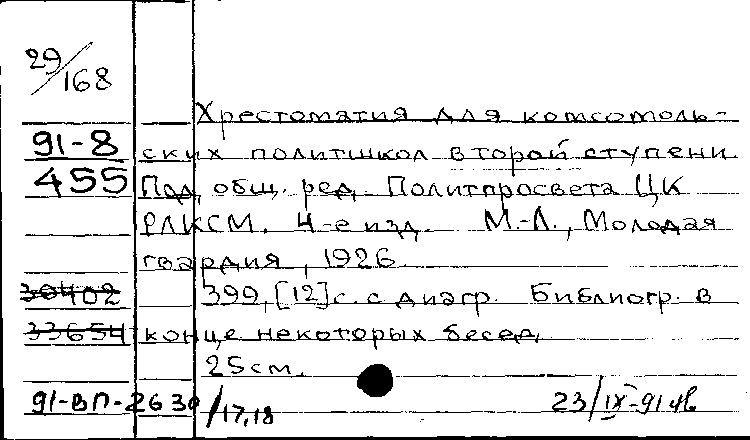 29/168
Хрестоматия для комсомоль-
91-8 ских политшкол второй ступени
455 Под общ. ред. Политпросвета ЦК
РЛКСМ. 4-е изд. М.-Л., Молодая
гвардия, 1926.
30402 399,[12]с. с диагр. Библиогр. в
33654 конце некоторых бесед.
25см.
91-ВП-2630/17,18 23/IX-91